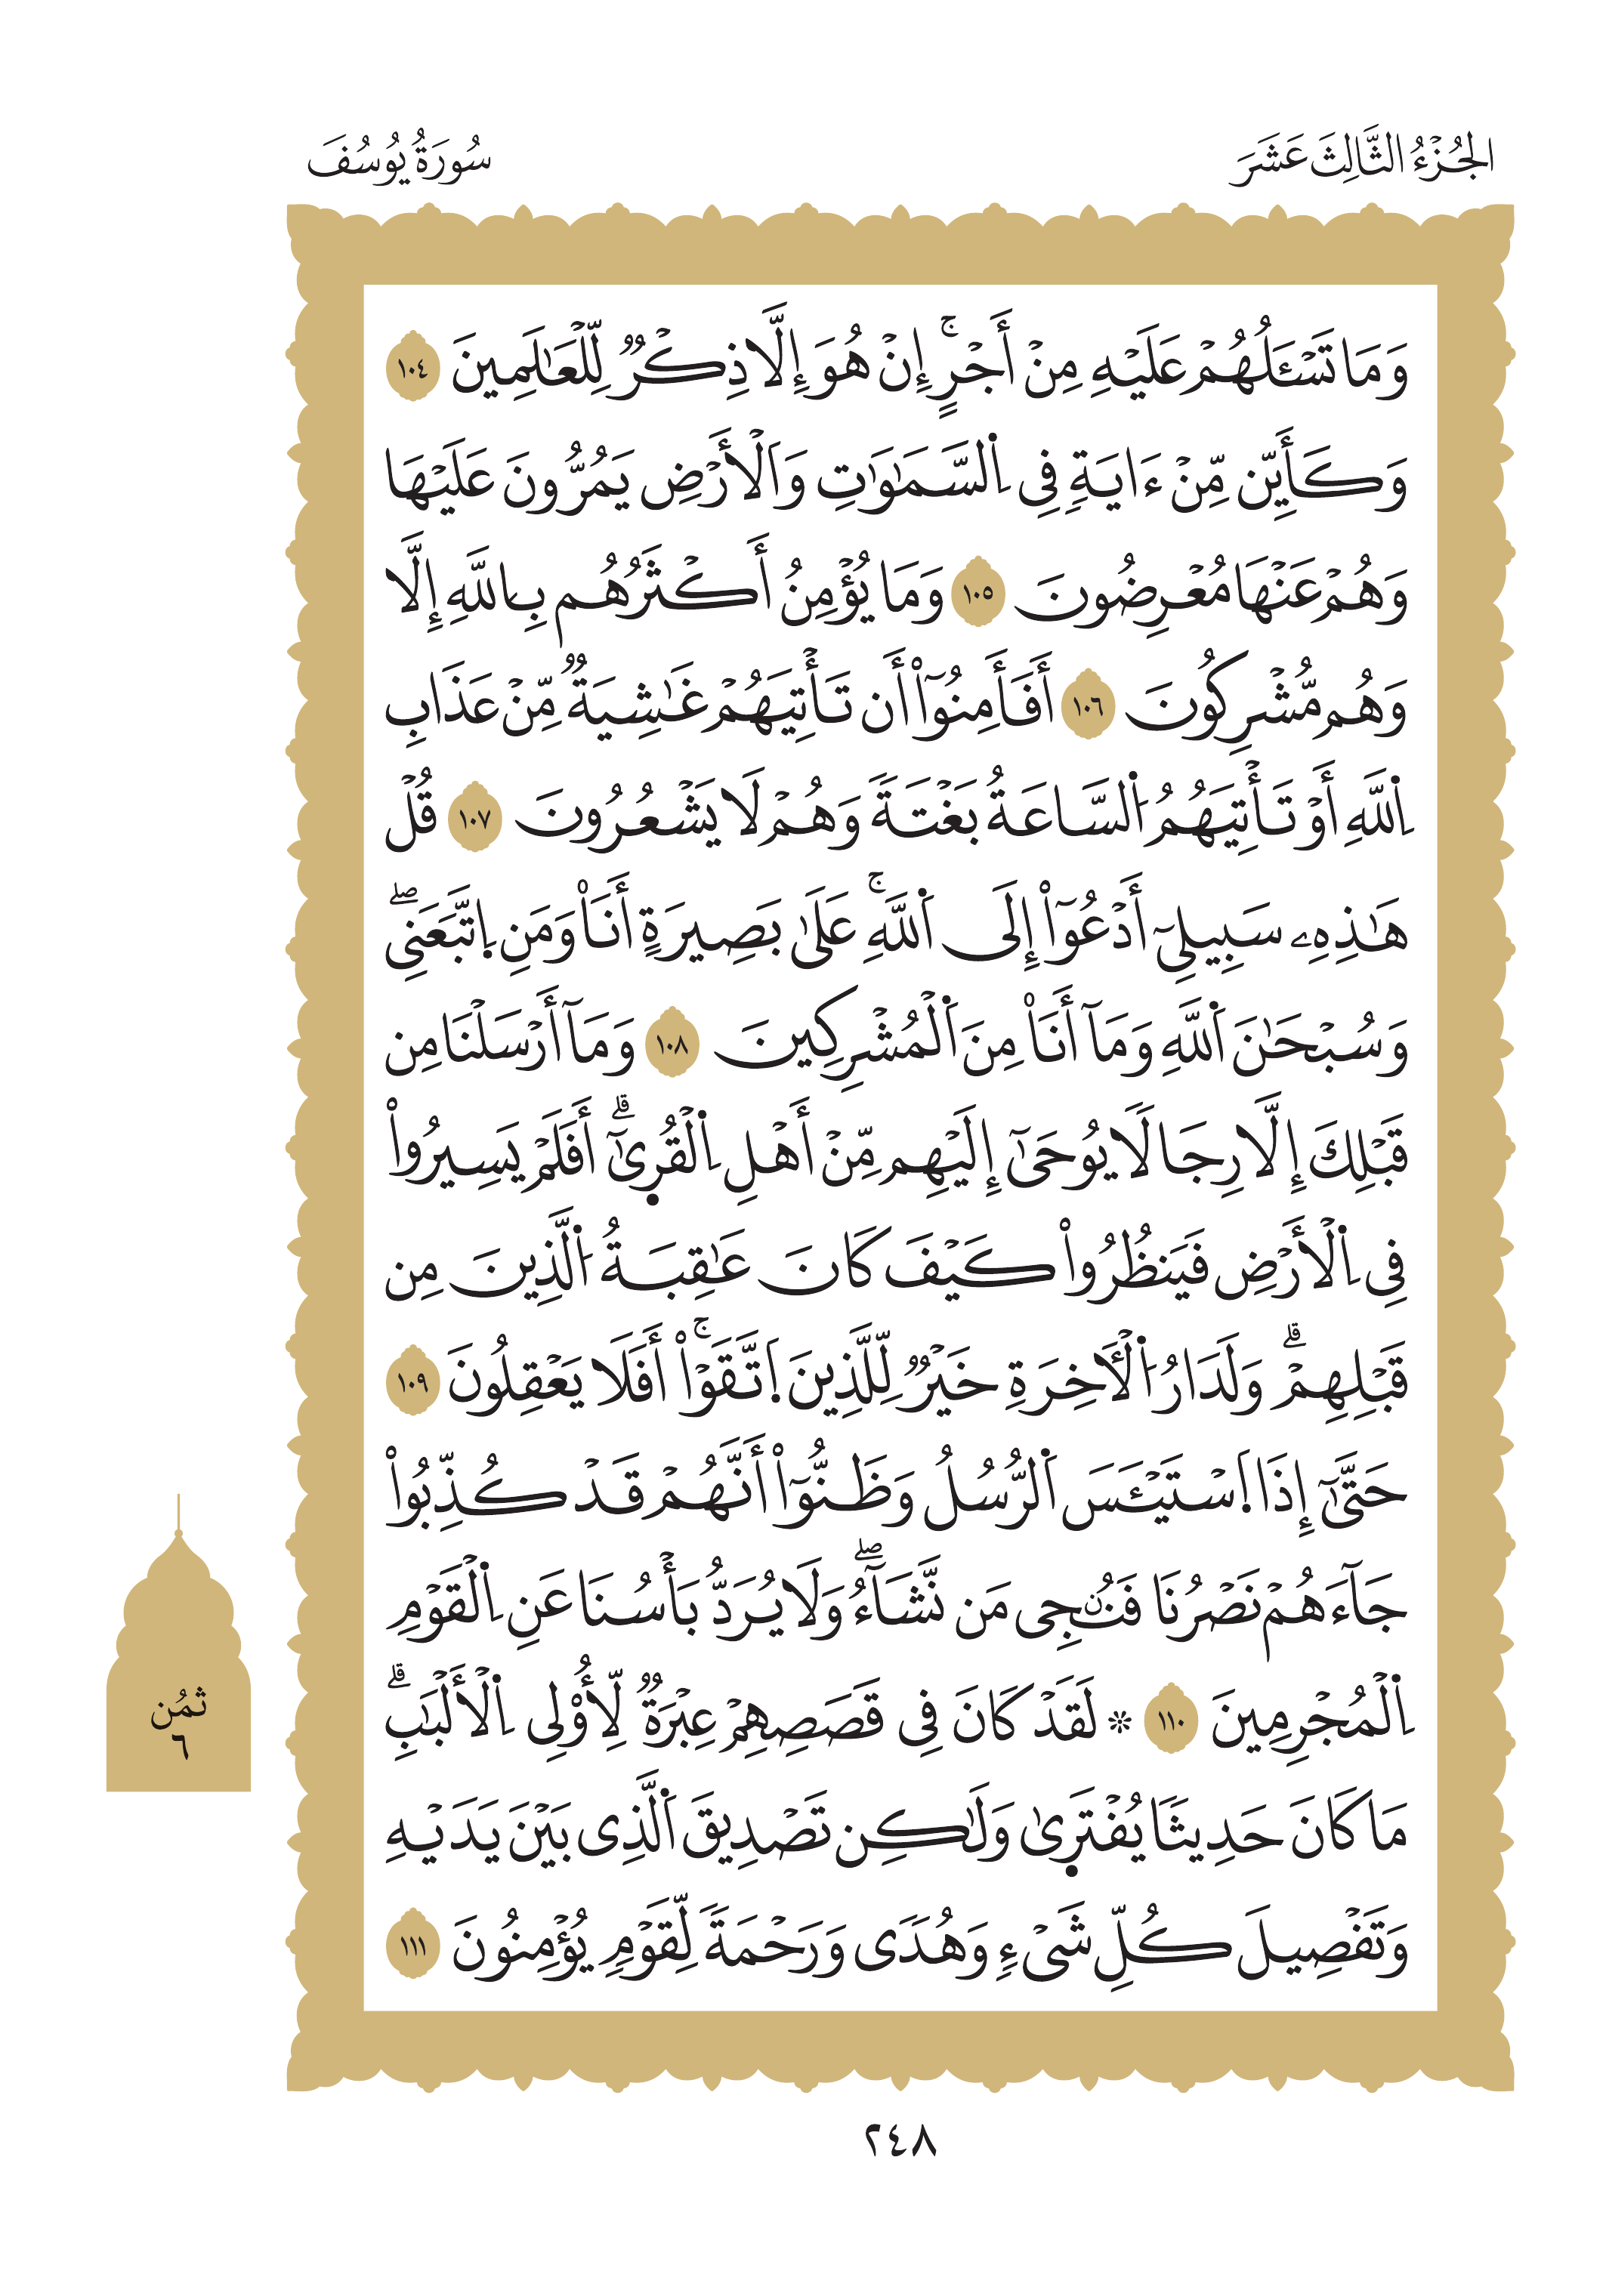 الجُزْءُ الثَّالِثَ عَشَرَ
سُورَةُ يُوسُفَ
وَمَا تَسْـَٔلُهُمْ عَلَيْهِ مِنْ أَجْرٍۚ إِنْ هُوَ إِلَّا ذِكْرٞ لِّلْعَٰلَمِينَ ١٠٤
وَكَأَيِّن مِّنْ ءَايَةٖ فِى اِ۬لسَّمَٰوَٰتِ وَالْأَرْضِ يَمُرُّونَ عَلَيْهَا
وَهُمْ عَنْهَا مُعْرِضُونَ ١٠٥ وَمَا يُؤْمِنُ أَكْثَرُهُم بِاللَّهِ إِلَّا
وَهُم مُّشْرِكُونَ ١٠٦ أَفَأَمِنُوٓاْ أَن تَأْتِيَهُمْ غَٰشِيَةٞ مِّنْ عَذَابِ
اِ۬للَّهِ أَوْ تَأْتِيَهُمُ اُ۬لسَّاعَةُ بَغْتَةٗ وَهُمْ لَا يَشْعُرُونَ ١٠٧ قُلْ
هَٰذِهِۦ سَبِيلِىٓ أَدْعُوٓاْ إِلَى اَ۬للَّهِۚ عَلَىٰ بَصِيرَةٍ أَنَا۠ وَمَنِ اِ۪تَّبَعَنِىۖ
وَسُبْحَٰنَ اَ۬للَّهِ وَمَآ أَنَا۠ مِنَ اَ۬لْمُشْرِكِينَ ١٠٨ وَمَآ أَرْسَلْنَا مِن
قَبْلِكَ إِلَّا رِجَالٗا يُوحَىٰٓ إِلَيْهِم مِّنْ أَهْلِ اِ۬لْقُر۪ىٰٓۗ أَفَلَمْ يَسِيرُواْ
فِى اِ۬لْأَرْضِ فَيَنظُرُواْ كَيْفَ كَانَ عَٰقِبَةُ اُ۬لَّذِينَ مِن
قَبْلِهِمْۗ وَلَدَارُ اُ۬لْأٓخِرَةِ خَيْرٞ لِّلَّذِينَ اَ۪تَّقَوْاْۚ أَفَلَا يَعْقِلُونَ ١٠٩
حَتَّىٰٓ إِذَا اَ۪سْتَيْـَٔسَ اَ۬لرُّسُلُ وَظَنُّوٓاْ أَنَّهُمْ قَدْ كُذِّبُواْ
جَآءَهُمْ نَصْرُنَا فَنُۨجِى مَن نَّشَآءُۖ وَلَا يُرَدُّ بَأْسُنَا عَنِ اِ۬لْقَوْمِ
اِ۬لْمُجْرِمِينَ ١١٠ ۞ لَقَدْ كَانَ فِى قَصَصِهِمْ عِبْرَةٞ لِّأُوْلِى اِ۬لْأَلْبَٰبِۗ
مَا كَانَ حَدِيثٗا يُفْتَر۪ىٰ وَلَٰكِن تَصْدِيقَ اَ۬لَّذِى بَيْنَ يَدَيْهِ
وَتَفْصِيلَ كُلِّ شَىْءٍ وَهُدٗى وَرَحْمَةٗ لِّقَوْمٍ يُؤْمِنُونَ ١١١
ثُمُن
٦
٢٤٨